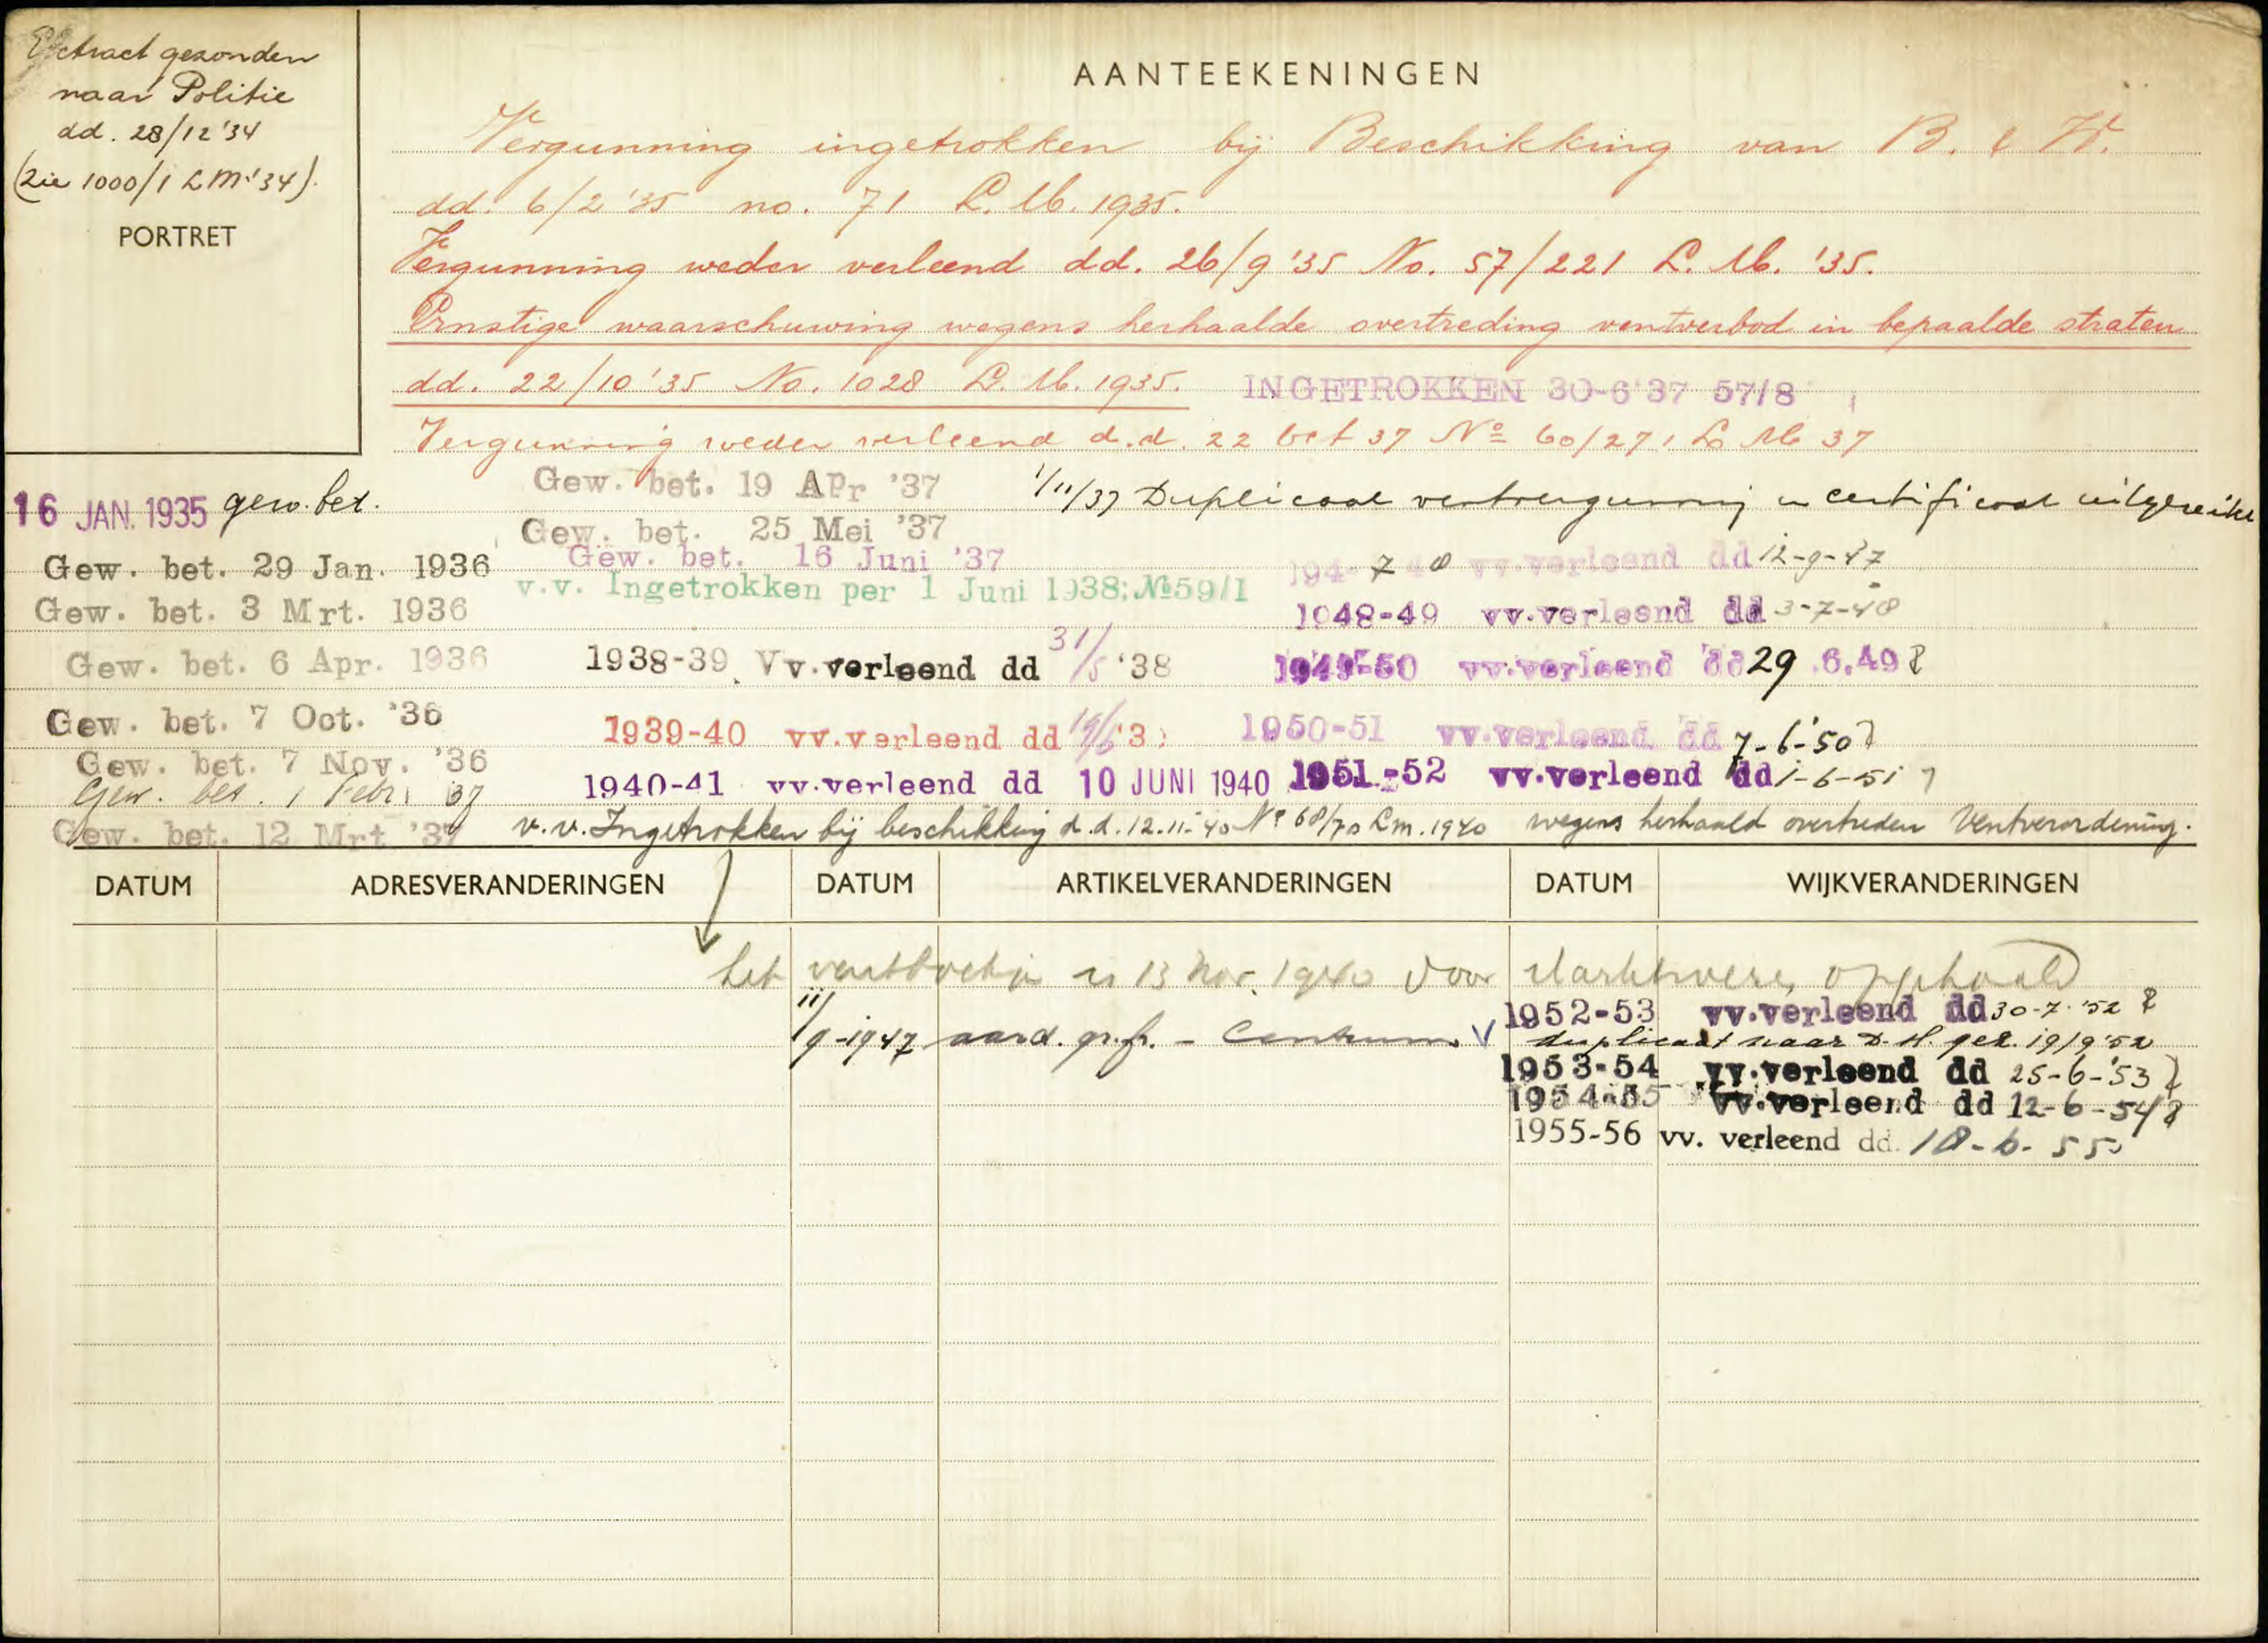 Extract gezonden
naar Politie
dd. 28/12 '34
(Zie 1000/1 L.M. '34).
PORTRET
AANTEEKENINGEN
Vergunning ingetrokken bij Beschikking van B. & W.
dd. 6/2 '35 no. 71 L. M. 1935.
Vergunning weder verleend dd. 26/9 '35 No. 57/221 L. M. '35.
Ernstige waarschuwing wegens herhaalde overtreding ventverbod in bepaalde straten
dd. 22/10 '35 No. 1028 L. M. 1935. INGETROKKEN 30-6'37 57/8
Vergunning weder verleend d.d. 22 Oct 37 No 60/271 L M 37
16 JAN. 1935 gew. bet.
Gew. bet. 29 Jan. 1936
Gew. bet. 3 Mrt. 1936
Gew. bet. 6 Apr. 1936
Gew. bet. 7 Oct. '36
Gew. bet. 7 Nov. '36
Gew. bet. 1 Febr. 37
Gew. bet. 12 Mrt '37
Gew. bet. 19 APr '37
Gew. bet. 25 Mei '37
Gew. bet. 16 Juni '37
v.v. Ingetrokken per 1 Juni 1938: №59/1
1938-39 Vv.verleend dd 31/5 '38
1939-40 vv.verleend dd
1940-41 vv.verleend dd 10 JUNI 1940
1/11/37 Duplicaat ventvergunning en certificaat uitgereikt
194 7 8 vv.verleend dd 12-9-47
1948-49 vv.verleend dd 3-7-48
1949-50 vv.verleend dd 29.6.49
1950-51 vv.verleend dd 7-6-'50
1951-52 vv.verleend dd 1-6-51
v.v. Ingetrokken bij beschikking d.d. 12.11.'40 No 68/70 L.M. 1940 wegens herhaald overtreden Ventverordening.
DATUM ADRESVERANDERINGEN DATUM ARTIKELVERANDERINGEN DATUM WIJKVERANDERINGEN
het ventboekje is 13 Nov. 1940 door Marktwezen opgehaald
11/9-1947 aard. gr. fr. - Centrum V
1952-53 vv.verleend dd 30-7-'52
duplicaat naar D.H. gez. 19/9 '52
1953-54 vv.verleend dd 25-6-'53
1954-55 vv.verleend dd 12-6-54
1955-56 vv. verleend dd. 18-6-55